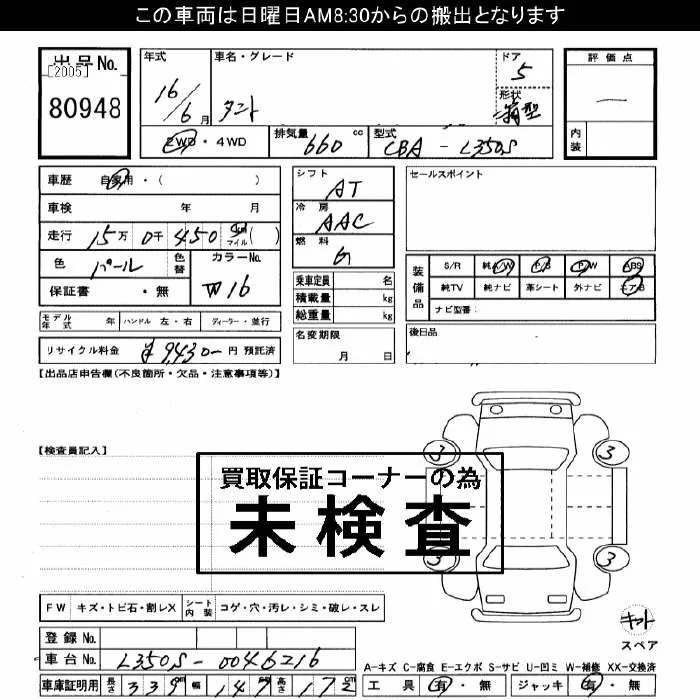 この車両は日曜日AM8:30からの搬出となります
出品No.
[2005]
80948
年式
16/6月
車名・グレード
タント
ドア
5
形状
箱型
2WD・4WD
排気量 660 cc
型式 CBA - L350S
評価点
―
内装
車歴 自家用・( )
車検 年 月
走行 15万 0千 450 Km マイル ( )
色 パール 色替
カラーNo. W16
保証書 ・無
モデル年式 年 ハンドル 左・右 ディーラー・並行
リサイクル料金 ¥9,430- 円 預託済
シフト AT
冷房 AAC
燃料 G
乗車定員 名
積載量 kg
総重量 kg
名変期限 月 日
セールスポイント
装備品
S/R 純A/W P/S P/W ABS
純TV 純ナビ 革シート 外ナビ エアB
ナビ型番:
後日品
【出品店申告欄(不良箇所・欠品・注意事項等)】
【検査員記入】
買取保証コーナーの為
未検査
3 3
3 3
キット
スペア
FW キズ・トビ石・割レX シート内装 コゲ・穴・汚レ・シミ・破レ・スレ
登録No.
車台No. L350S-0046216
車庫証明用 長さ 339 幅 147 高さ 172
A-キズ C-腐食 E-エクボ S-サビ U-凹ミ W-補修 XX-交換済
工具 有・無 ジャッキ 有・無